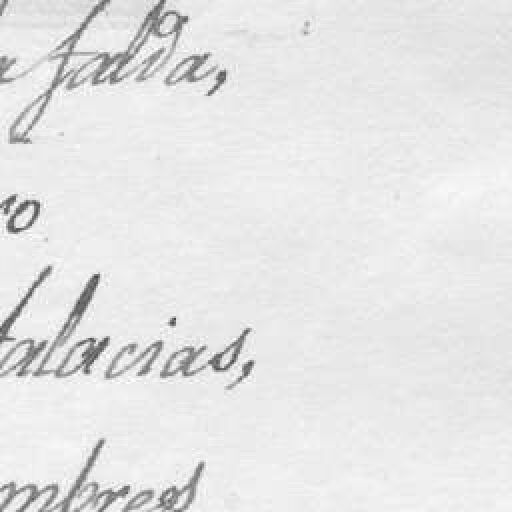 a falda,
ro
talacias,
mbres